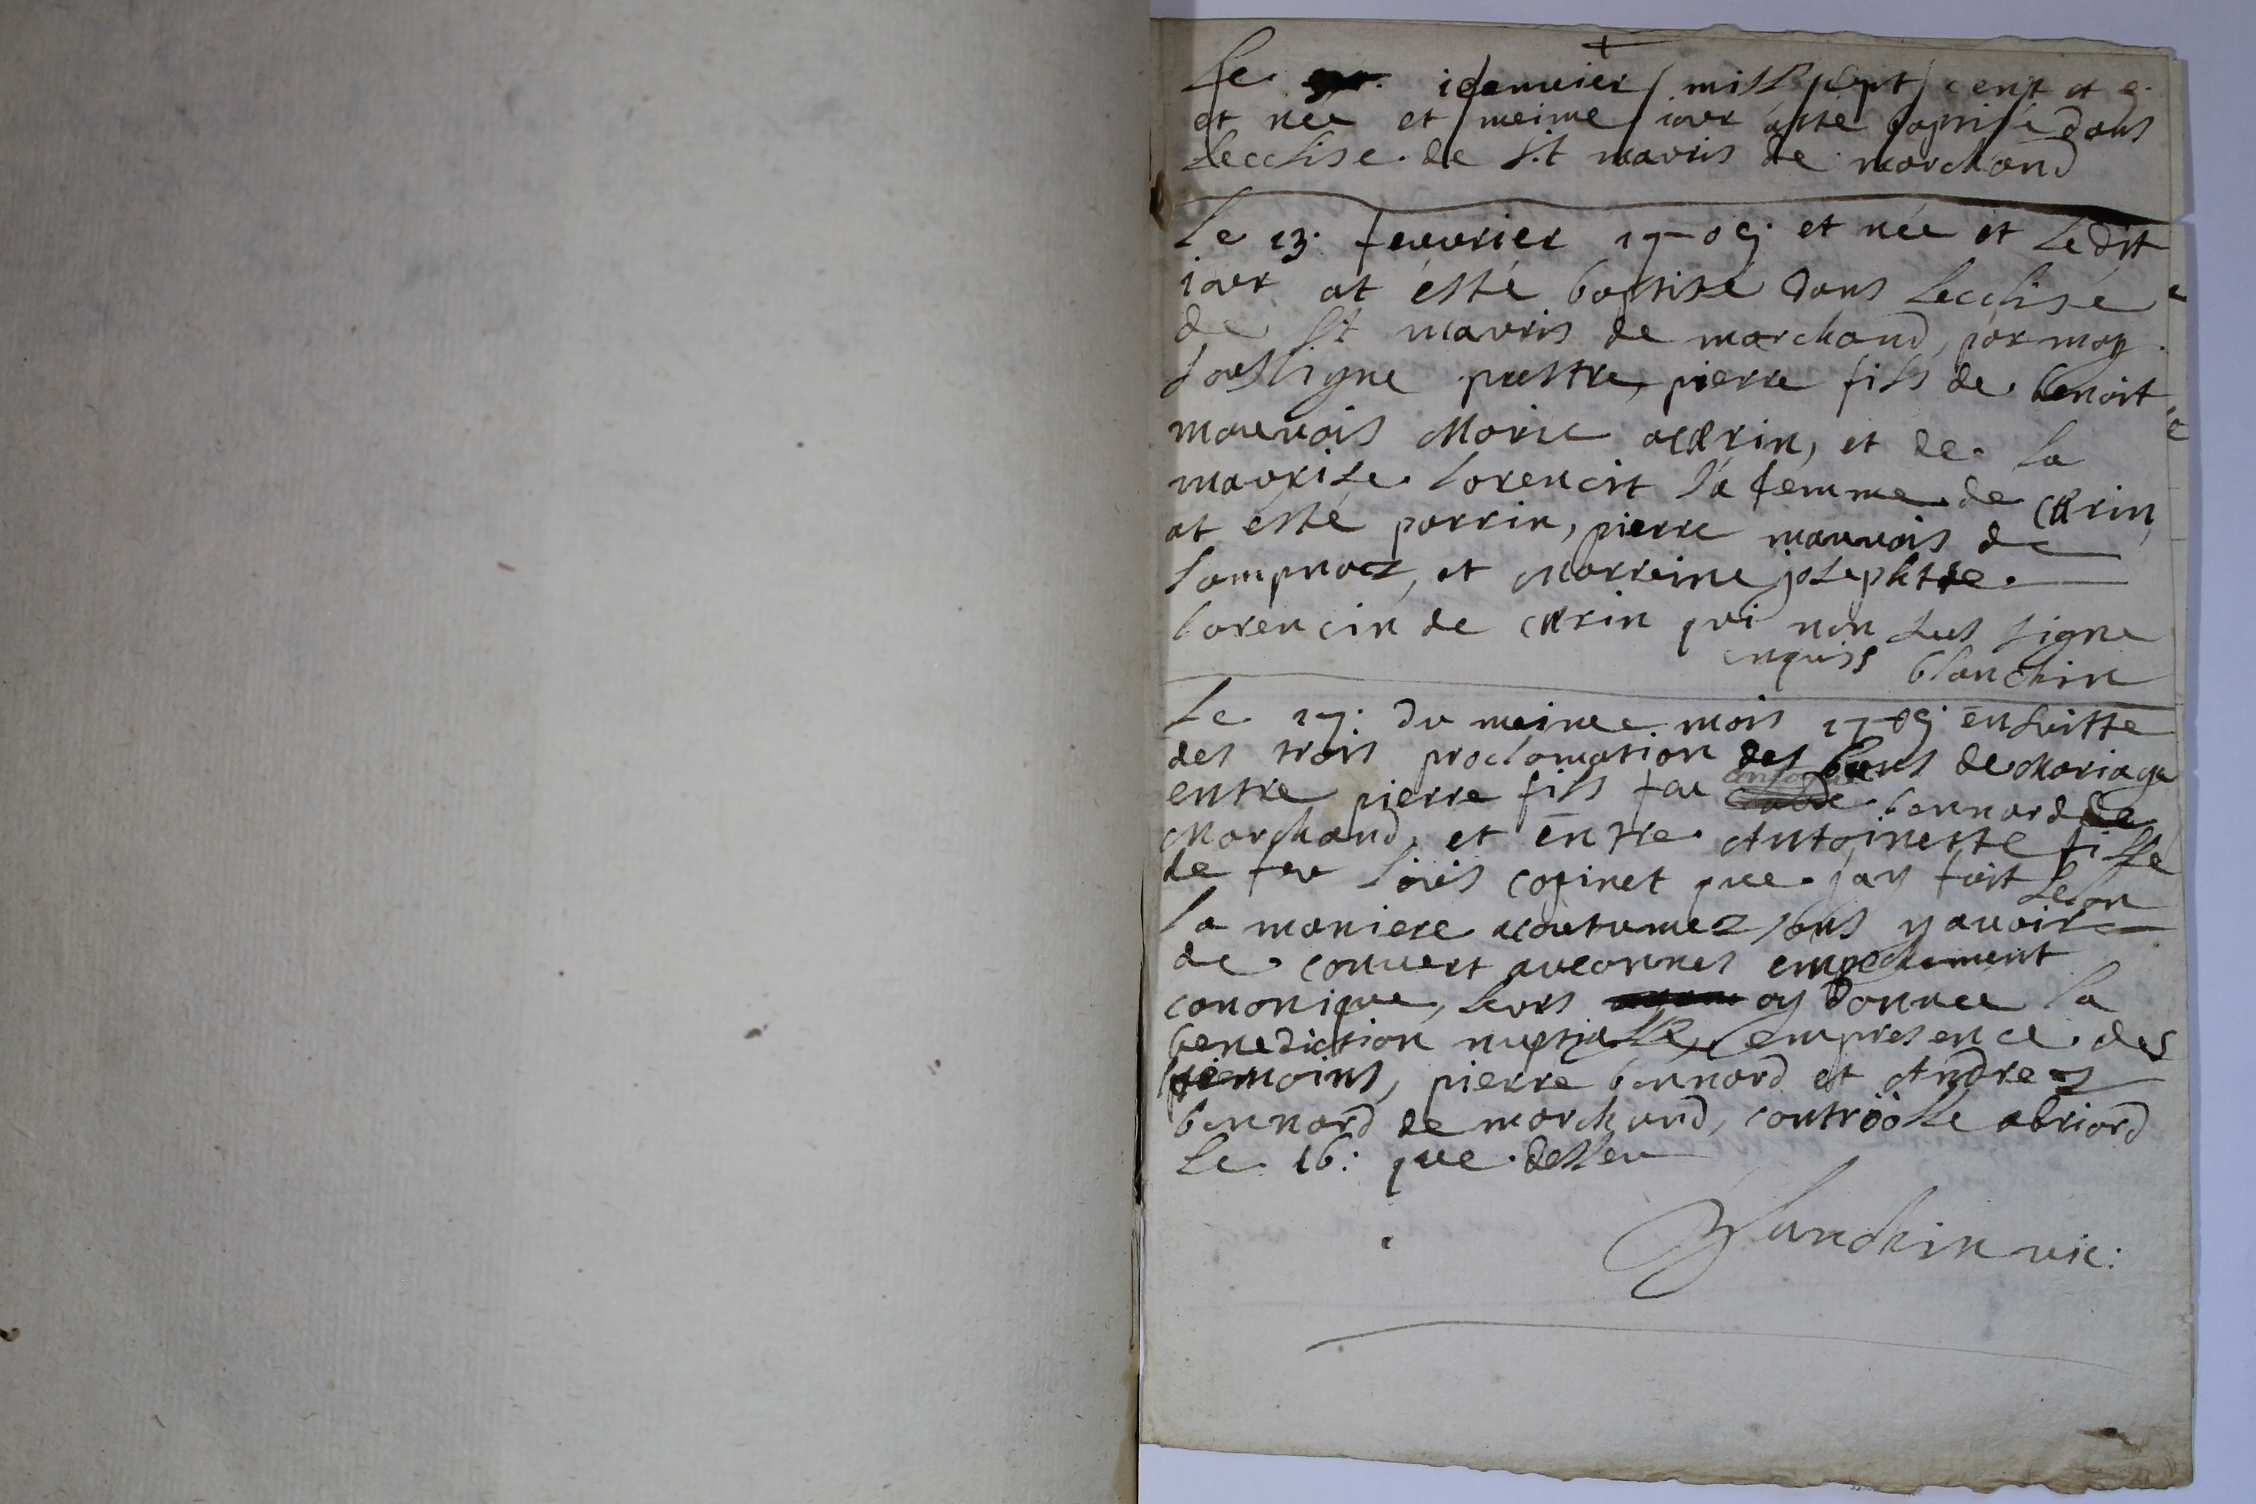 Le ienuier mill sept cent et 9.
et née et meime iour asté baptisé dans
Lecclise de S.t mauris de marchand
Le 13. feuurier 1709. et née et Ledit
iour at ésté baptisé dans Lecclise
de St mauris de marchand, par moy
soussigne prestre, pierre fils de benoit
mauuais Morie a cerin, et de la
maurise Lorencit sa femme de cerin,
at esté parrin, pierre mauuais de
Lompnaz, et Marreine josephte
Lorencin de cerin qui non sus signe
enquiss blanchin
Le 17. du meime mois 1709. en suitte
des trois proclomation des bans de Mariage
antoyne
entre pierre fils feu bonnard de
Marchand, et entre Antoinette fille
de feu Lois cozinet que jay fait selon
la maniere acoutumez sans y avoir
de convert aucunnes empechement
canonique, leurs ay donnee la
benediction nuptialle, en presence des
temoins, pierre bonnard et Andre
bonnard de marchand, controolle a briord
Le 16: que desseu
Blanchin vic: